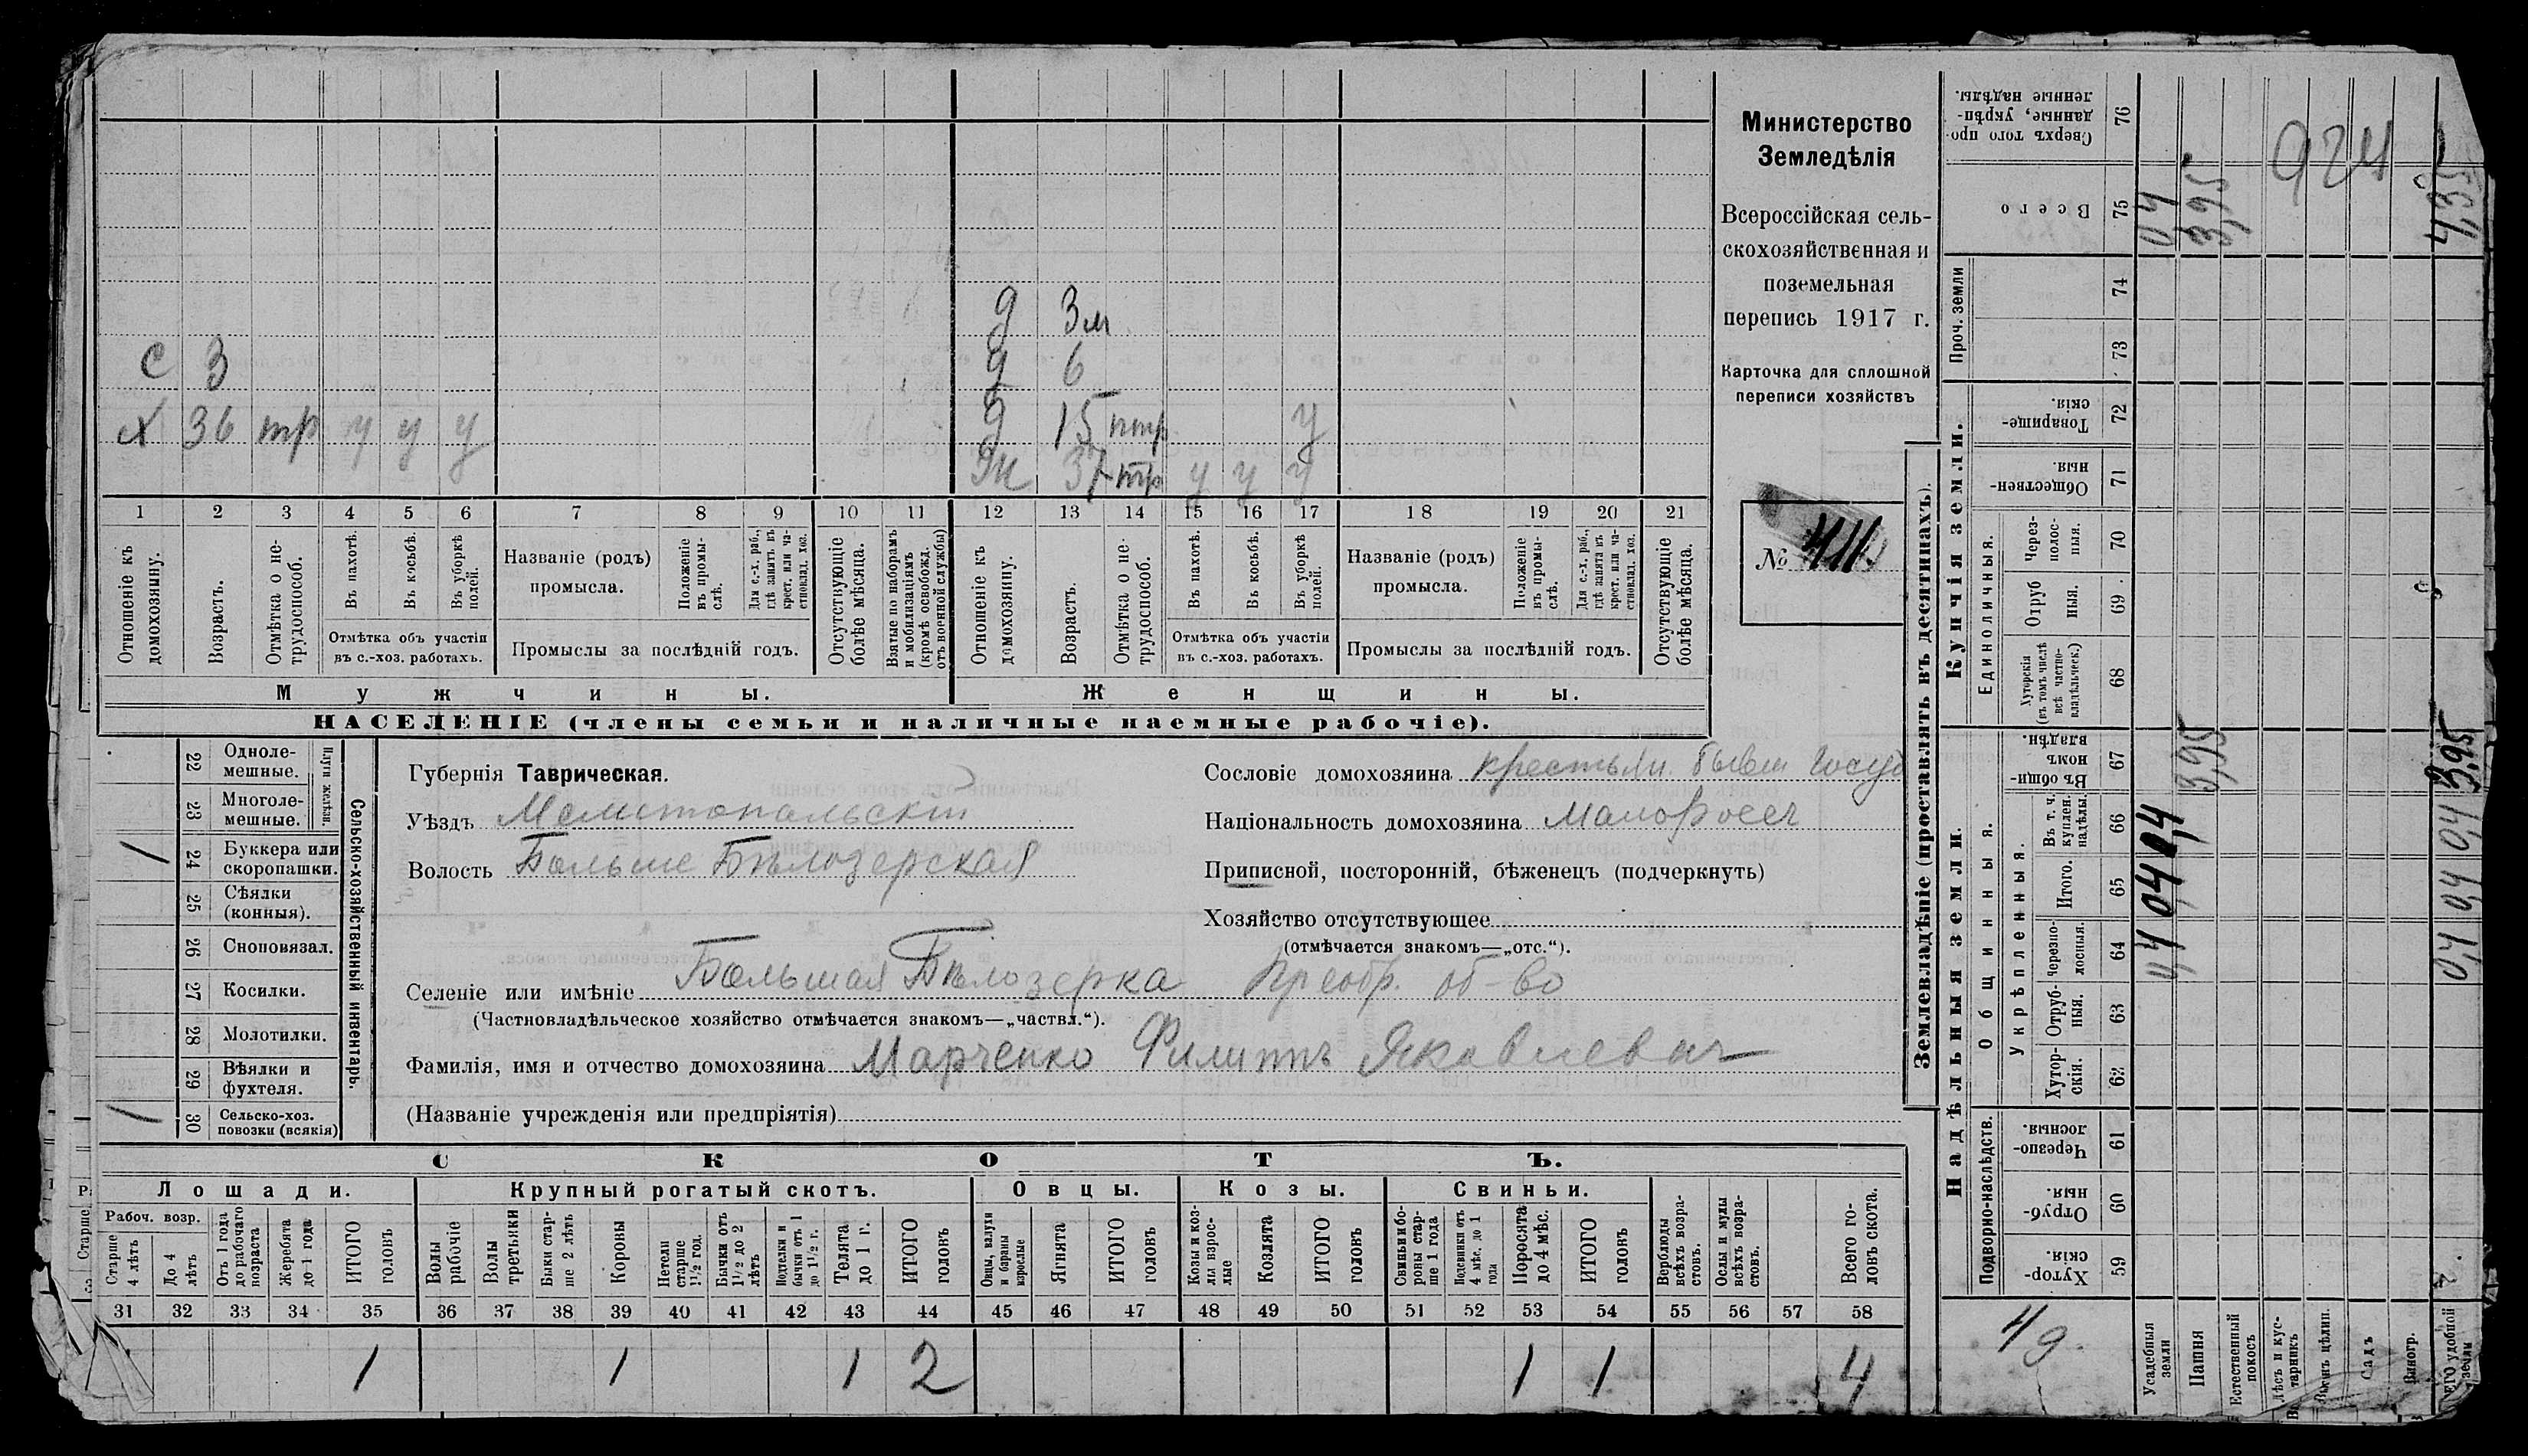 Министерство
Земледѣлія
Всероссійская сель-
скохозяйственная и
поземельная
перепись 1917 г.
Карточка для сплошной
переписи хозяйствъ
№
д 3м
с 3
д 6
х 36 тр у у у
д 15 птр у
жн 37 тр у у у
1 2 3 4 5 6 7 8 9 10 11 12 13 14 15 16 17 18 19 20 21
Отношеніе къ домохозяину.
Возрастъ.
Отмѣтка о не-трудоспособ.
Въ пахотѣ.
Въ косьбѣ.
Въ уборкѣ полей.
Отмѣтка объ участіи
въ с.-хоз. работахъ.
Названіе (родъ)
промысла.
Положеніе въ промы-слѣ.
Для с.-х. раб., гдѣ занятъ въ крест. или ча-стновлад. хоз.
Промыслы за послѣдній годъ.
Отсутствующіе болѣе мѣсяца.
Взятые по наборамъ и мобилизаціямъ (кромѣ освобожд. отъ военной службы)
Отношеніе къ домохозяину.
Возрастъ.
Отмѣтка о не-трудоспособ.
Въ пахотѣ.
Въ косьбѣ.
Въ уборкѣ полей.
Отмѣтка объ участіи
въ с.-хоз. работахъ.
Названіе (родъ)
промысла.
Положеніе въ промы-слѣ.
Для с.-х. раб., гдѣ занята въ крест. или ча-стновлад. хоз.
Промыслы за послѣдній годъ.
Отсутствующіе болѣе мѣсяца.
Мужчины.
Женщины.
НАСЕЛЕНІЕ (члены семьи и наличные наемные рабочіе).
Сельско-хозяйственный инвентарь.
Плуги желѣзн.
22 Одноле-
мешные.
23 Многоле-
мешные.
/ 24 Буккера или
скоропашки.
25 Сѣялки
(конныя).
26 Сноповязал.
27 Косилки.
28 Молотилки.
29 Вѣялки и
фухтеля.
/ 30 Сельско-хоз.
повозки (всякія)
Губернія Таврическая.
Уѣздъ Мелитопальскій
Волость Больше Бѣлозерская
Сословіе домохозяина крестьян. бывш Госуд
Національность домохозяина Малоросс
Приписной, посторонній, бѣженецъ (подчеркнуть)
Хозяйство отсутствующее
(отмѣчается знакомъ—„отс.“).
Селеніе или имѣніе Большая Бѣлозерка Преобр. об-во
(Частновладѣльческое хозяйство отмѣчается знакомъ—„частвл.“).
Фамилія, имя и отчество домохозяина Марченко Филиппъ Яковлевич
(Названіе учрежденія или предпріятія)
СКОТЪ.
Лошади. Крупный рогатый скотъ. Овцы. Козы. Свиньи.
Рабоч. возр.
Старше 4 лѣтъ
До 4 лѣтъ
Отъ 1 года до рабочаго возраста
Жеребята до 1 года
ИТОГО головъ
Волы рабочіе
Волы третьяки
Быки стар-ше 2 лѣтъ
Коровы
Нетели старше 1½ год.
Бычки отъ 1½ до 2 лѣтъ
Подтелки и бычки отъ 1 до 1½ г.
Телята до 1 г.
ИТОГО головъ
Овцы, валухи и бараны взрослые
Ягнята
ИТОГО головъ
Козы и коз-лы взрос-лые
Козлята
ИТОГО головъ
Свиньи и бо-ровы стар-ше 1 года
Подсвинки отъ 4 мѣс. до 1 года
Поросята до 4 мѣс.
ИТОГО головъ
Верблюды всѣхъ возра-стовъ.
Ослы и мулы всѣхъ возра-стовъ.
Всего го-ловъ скота.
31 32 33 34 35 36 37 38 39 40 41 42 43 44 45 46 47 48 49 50 51 52 53 54 55 56 57 58
1 1 1 2 1 1 4
Землевладѣніе (проставлять въ десятинахъ).
Надѣльныя земли.
Купчія земли.
Проч. земли
Подворно-наслѣдств.
Общинныя.
Укрѣпленныя.
Единоличныя.
Сверхъ того про-данные, укрѣп-ленные надѣлы. 76
Всего 75 04 3,95 4,35
74
73
Товарище-скія. 72
Обществен-ныя. 71
Через-полос-ныя. 70
Отруб-ныя. 69
Хуторскія (въ томъ числѣ всѣ частно-владѣльческ.) 68
Въ общин-номъ владѣн. 67 3,95 3,95
Въ т. ч. куплен. надѣлы. 66 0,4 0,4
Итого. 65 04 0,4
Черезпо-лосныя. 64 0,4
Отруб-ныя. 63
Хутор-скія. 62
Черезпо-лосныя. 61
Отруб-ныя. 60
Хутор-скія. 59
924
Усадебныя земли
Пашня
Естественный покосъ
Лѣсъ и кус-тарникъ
Выгонъ цѣлин.
Садъ
Виногр.
удобной земли